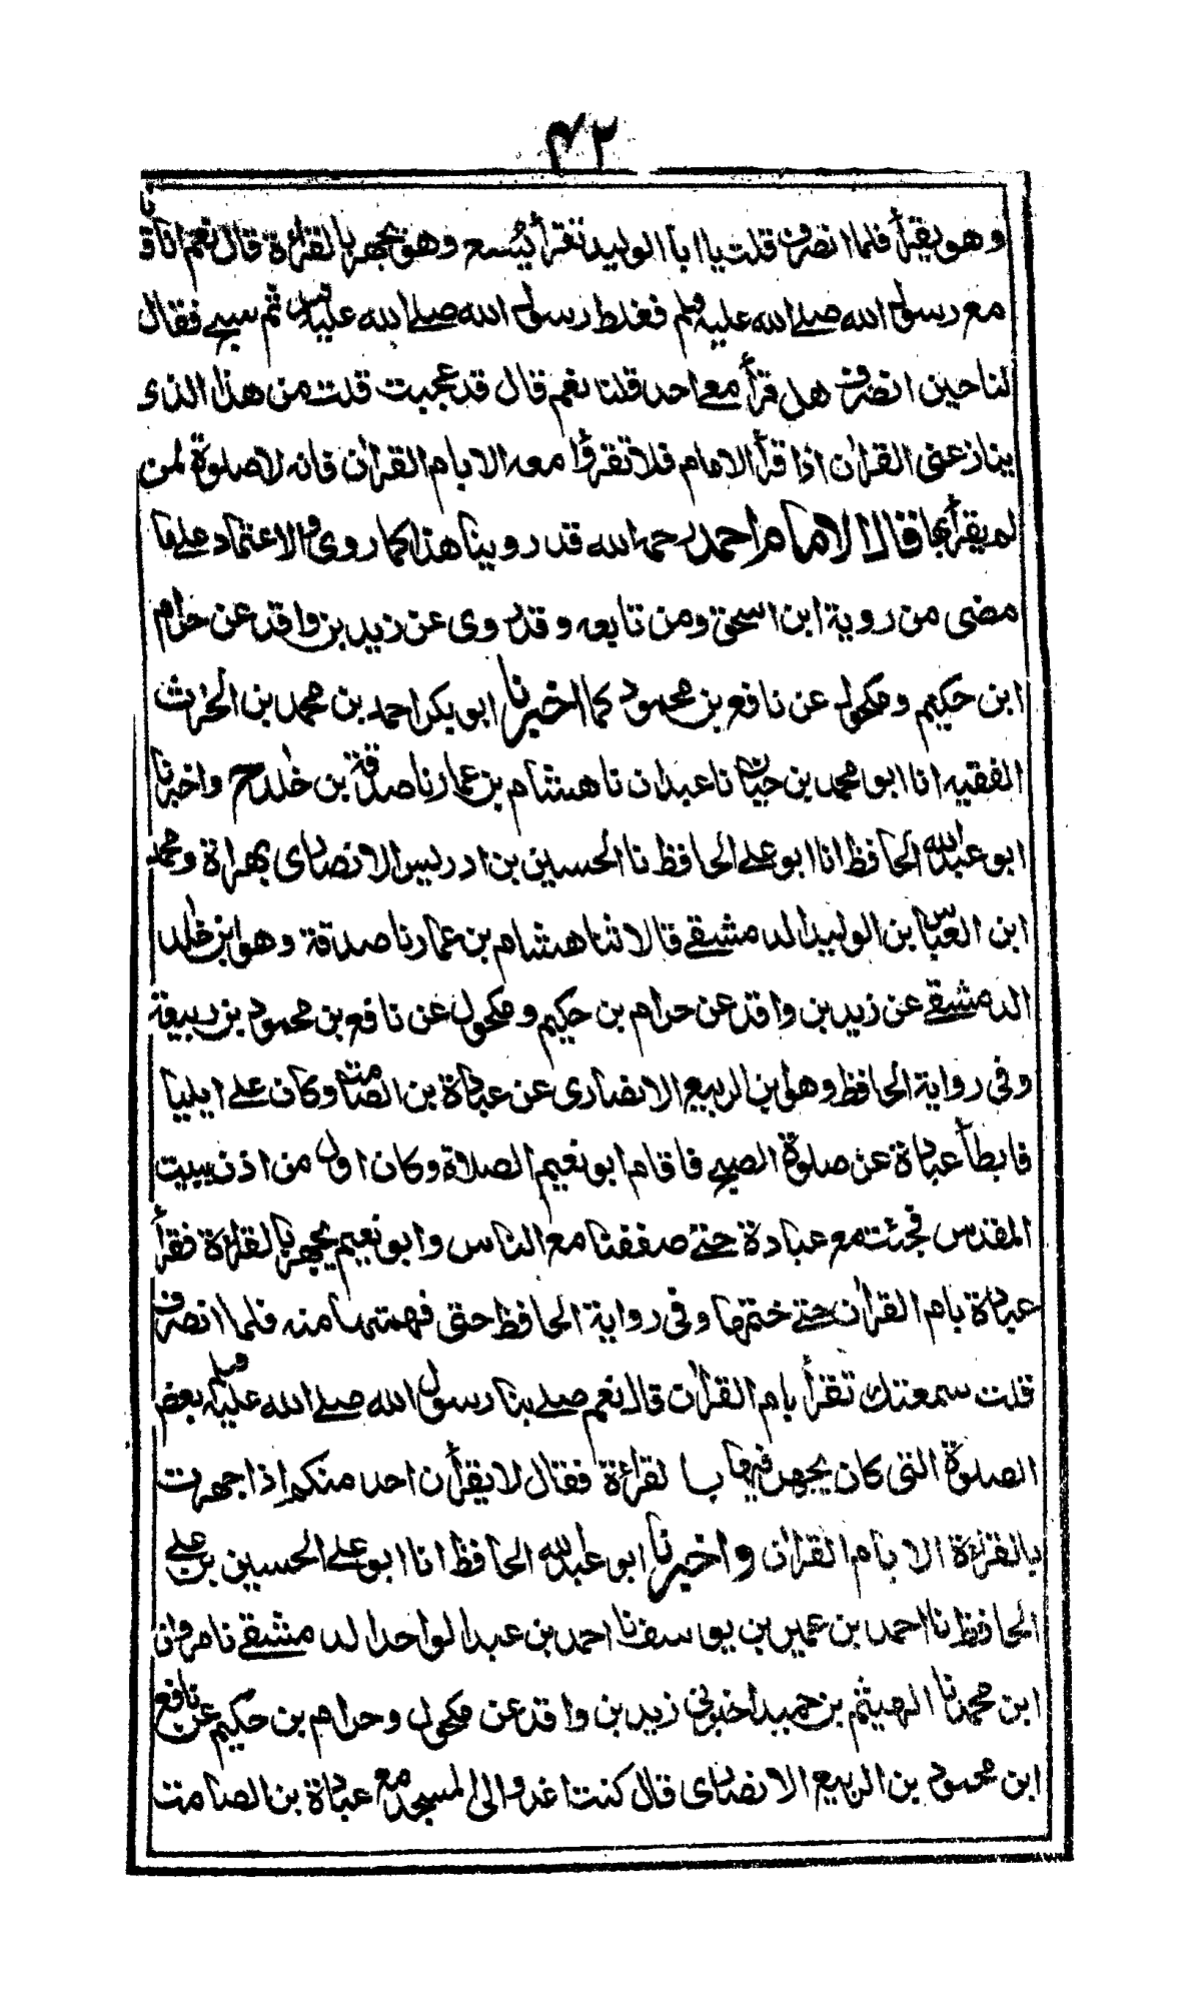 ۴۲
وهو يقرأ فلما انصرف قلت يا ابا الوليد تقرأ يُسمع وهو يجهر بالقراءة قال نعم انا قرأنا
مع رسول الله صلے الله عليه وسلم فغلط رسول الله صلے الله عليه وسلم ثم سبح فقال
لنا حين انصرف هل قرأ معے احد قلنا نعم قال قد عجبت قلت من هذا الذى
ينازعنى القرأن اذا قرأ الامام فلا تقرؤا معه الا بام القرأن فانه لا صلوة لمن
لم يقرأ بها قال الامام احمد رحمه الله قد روينا هذا كما روى والاعتماد علے ما
مضى من روية ابن اسحق ومن تابعه وقد روى عن زيد بن واقد عن حرام
ابن حكيم ومكحول عن نافع بن محمود كما اخبرنا ابو بكر احمد بن محمد بن الحرث
الفقيه انا ابو محمد بن حيان نا عبدان نا هشام بن عمار نا صدقة بن خلد ح واخبرنا
ابو عبد الله الحافظ انا ابو علے الحافظ نا الحسين بن ادريس الانصارى بهراة ومحمد
ابن العباس بن الوليد الدمشقے قالا ثنا هشام بن عمار نا صدقة وهو ابن خلد
الدمشقے عن زيد بن واقد عن حرام بن حكيم ومكحول عن نافع بن محمود بن ربيعة
وفى رواية الحافظ وهو ابن الربيع الانصارى عن عبادة بن الصامت وكان علے ايليا
فابطأ عبادة عن صلوة الصبح فاقام ابو نعيم الصلاة وكان اول من اذن ببيت
المقدس فجئت مع عبادة حتے صففنا مع الناس وابو نعيم يجهر بالقراءة فقرأ
عبادة بام القرأن حتے ختمها وفى رواية الحافظ حتى فهمتها منه فلما انصرف
قلت سمعتك تقرأ بام القرأن قال نعم صلے بنا رسول الله صلے الله عليه وسلم بعض
الصلوة التى كان يجهر فيها با لقراءة فقال لا يقرأن احد منكم اذا جهرت
بالقراءة الا بام القرأن واخبرنا ابو عبد الله الحافظ انا ابو علے الحسين بن علے
الحافظ نا احمد بن عمير بن يوسف نا احمد بن عبد الواحد الدمشقے نا مروان
ابن محمد نا الهيثم بن حميد اخبرنى زيد بن واقد عن مكحول وحرام بن حكيم عن نافع
ابن محمود بن الربيع الانصارى قال كنت اغدو الى المسجد مع عبادة بن الصامت